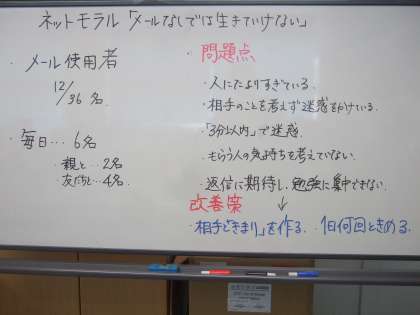 ネットモラル「メールなしでは生きていけない」
・メール使用者
12/36 名
・毎日… 6名
・親と… 2名
・友だちと… 4名
問題点
・人にたよりすぎている。
・相手のことを考えず迷惑をかけている。
・「3分以内」で迷惑。
・もらう人の気持ちを考えていない。
・返信に期待し、勉強に集中できない。
改善策
・相手と「きまり」を作る。・1日何回ときめる。